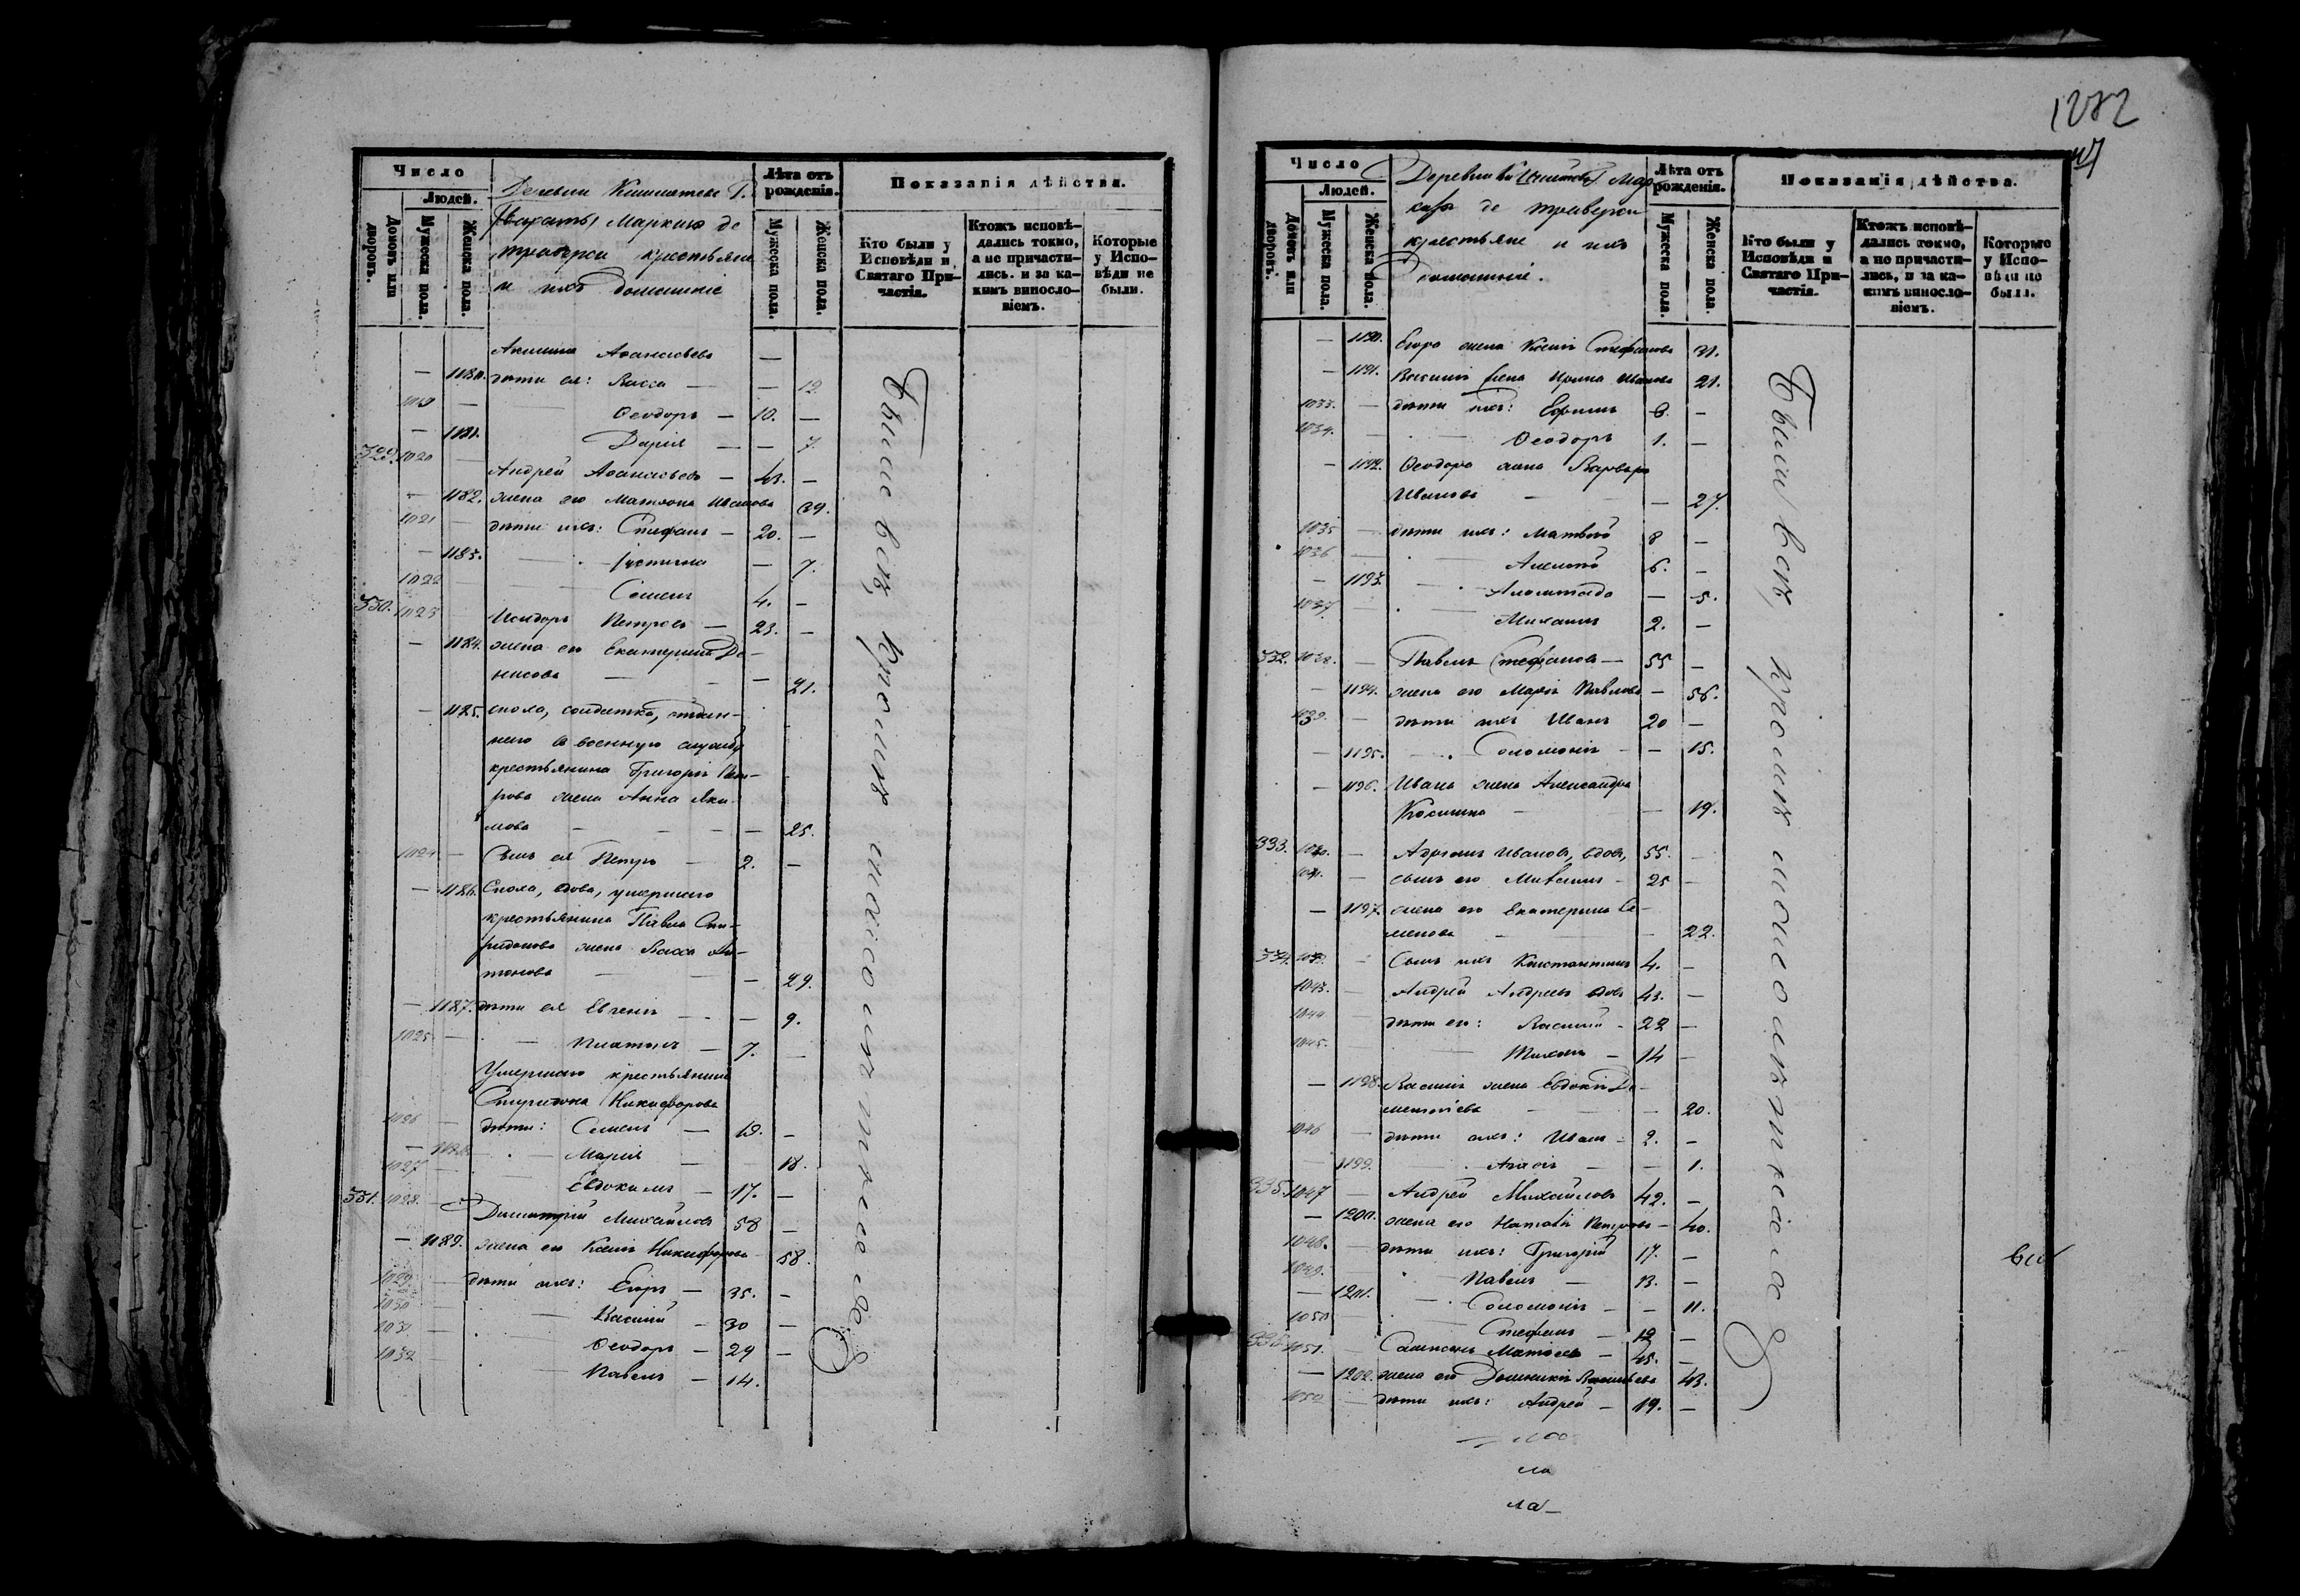 Число
Людей.
Домовъ или дворовъ.
Мужеска пола.
Женска пола.
Деревни
Маркиза де
траверси крестьяне
и ихъ домашніе
Лѣта отъ рожденія.
Мужеска пола.
Женска пола.
Показанія дѣйства.
Кто были у Исповѣди и Святаго Причастія.
Ктожъ исповѣдались токмо, а не причастились, и за какимъ винословіемъ.
Которые у Исповѣди не были.
Акилина Аѳанасьева —
— 1180. дѣти ея: Васса — — 12
1019 — Ѳеодоръ — 10. —
— 1181. Дарія — — 7
329. 1020 — Андрей Аѳанасьевъ — 43. —
— 1182. жена его Матрона Иванова 39.
1021 — дѣти ихъ: Стефанъ — 20. —
— 1183. Іустина — 7.
1022 Семенъ 4. —
330. 1023 Исидоръ Петровъ — 23. —
— 1184. жена его Екатерина Де-
нисова — — 21.
— 1185. снола, солдатка,
въ военную службу
крестьянина Григорія Пет-
рова жена Анна Яки-
мова — — — — 25.
1024 — Сынъ ея Петръ — 2. —
— 1186. Снола, вдова, умершаго
крестьянина Павла Спи-
ридонова жена Васса Ан-
тонова — — 29.
— 1187. дѣти ея Евгенія — — 9.
1025 — Платонъ — 7. —
Умершаго крестьянина
Спиридона Никифорова
1026 — дѣти: Семенъ — 19. —
— 1188. Марія — 18.
1027 — Евдокимъ — 17. —
331. 1028. — Димитрій Михайловъ 58 —
— 1189. жена его Ксенія Никифорова 58.
1029 — дѣти ихъ: Егоръ — 35. —
1030 — Василій — 30 —
1031 — Ѳеодоръ — 29 —
1032 — Павелъ — 14.
Были всѣ, кромѣ
1282
Число
Людей.
Домовъ или дворовъ.
Мужеска пола.
Женска пола.
Деревни Мар-
киза де траверси
крестьяне и ихъ
домашніе.
Лѣта отъ рожденія.
Мужеска пола.
Женска пола.
Показанія дѣйства.
Кто были у Исповѣди и Святаго Причастія.
Ктожъ исповѣдались токмо, а не причастились, и за какимъ винословіемъ.
Которые у Исповѣди не были.
— 1190. Егора жена Ксенія Стефанова 31.
— 1191. Василія жена Ирина Иванова 21.
1033. — дѣти ихъ: Ефимъ —
1034. — Ѳеодоръ 1. —
— 1192. Ѳеодора жена Варвара
Иванова — — 27.
1035 — дѣти ихъ: Матвѣй 8 —
1036 — Алексѣй 6. —
— 1193. — 5.
1037. — Михаилъ 2. —
332. 1038. — Павелъ Стефановъ — 55 —
— 1194. жена его Марія Павлова — 56.
1039. — дѣти ихъ Иванъ 20 —
— 1195. Соломонія — — 15.
— 1196. Ивана жена Александра
Косьмина — — 19.
333. 1040. — Иванова, вдовъ, 55. —
1041. — сынъ его 25 —
— 1197. жена его Екатерина Се-
менова — — 22.
334. 1042. — Сынъ ихъ Константинъ 4. —
1043. — Андрей Андреевъ вдовъ 43. —
1044. дѣти его: Василій — 22 —
1045. Тихонъ — 14 —
— 1198. Василія жена Евдокія Де-
ментіева — — 20.
1046 — дѣти ихъ: Иванъ — 2. —
— 1199. — 1.
335. 1047 — Андрей Михайловъ 42. —
— 1200. жена его Наталія Петрова — 40.
1048. — дѣти ихъ: Григорій 17. —
1049. Павелъ — 13. —
— 1201. Соломонія — — 11.
1050 Стефанъ — 12 —
336. 1051. — Сампсонъ 45. —
— 1202. жена его Домникія Васильева 43.
1052 — дѣти ихъ: Андрей — 19. —
Были всѣ, кромѣ